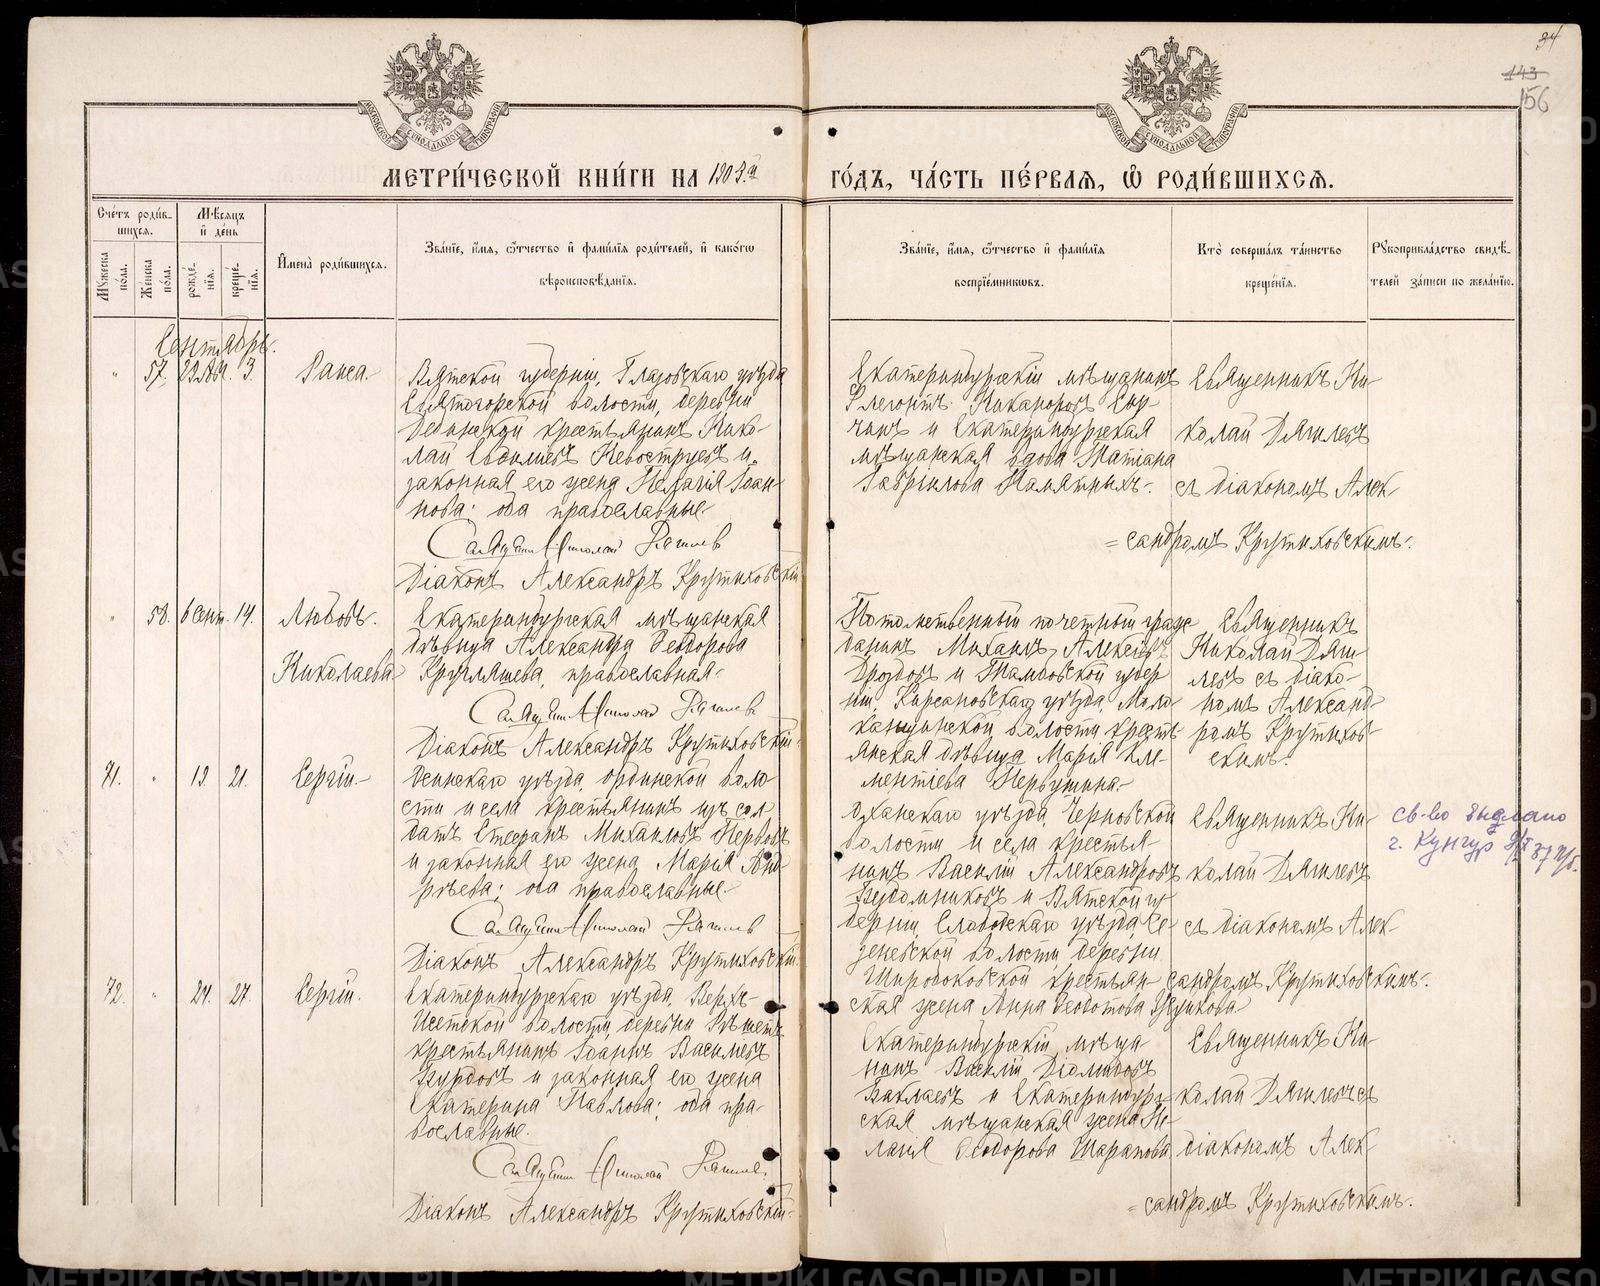 34
143
156
МОСКОВСКОЙ СѴНОДАЛЬНОЙ ТИПОГРАФІИ
МОСКОВСКОЙ СѴНОДАЛЬНОЙ ТИПОГРАФІИ
МЕТРИ́ЧЕСКОЙ КНИ́ГИ НА 1903.й
ГО́ДЪ, ЧА́СТЬ ПЕ́РВАЯ, Ѡ РОДИ́ВШИХСЯ.
Сче́тъ роди́вшихся.
Мꙋ́жеска по́ла.
Же́нска по́ла.
Мѣ́сяцъ и҆ де́нь
рожде́нїя.
креще́нїя.
И҆мена̀ роди́вшихся.
Зва́нїе, и҆́мя, ѻ҆́тчество и҆ фами́лїя роди́телей, и҆ како́гѡ
вѣроисповѣ́данїя.
Зва́нїе, и҆́мя, ѻ҆́тчество и҆ фами́лїя
воспрїе́мникѡвъ.
Кто̀ соверша́лъ та́инство
креще́нїя.
Рꙋкоприкла́дство свидѣ́телей за́писи по жела́нїю.
Сентябрь.
" 57. 29 Авг. 3. Раиса.
Вятской губерніи, Глазовскаго уѣзда
Святогорской волости, деревни
крестьянинъ Нико-
лай Васильевъ Невоструевъ и
законная его жена Пелагія Іоан-
нова; оба православные.
Священникъ Николай Дягилевъ
Діаконъ Александръ Крутиховскій
Екатеринбургскій мѣщанинъ
Флегонтъ Никаноровъ Сыр-
чинъ и Екатеринбургская
мѣщанская вдова Татіана
Гавріилова Памятныхъ.
Священникъ Ни-
колай Дягилевъ
съ діакономъ Алек-
= сандромъ Крутиховскимъ.
" 58. 6 Сент. 14. Любовь.
Николаева
Екатеринбургская мѣщанская
дѣвица Александра Ѳеодорова
Кругляшева, православная.
Священникъ Николай Дягилевъ
Діаконъ Александръ Крутиховскій.
Потомственный почетный граж-
данинъ Михаилъ Алексѣевъ
Дроздовъ и Тамбовской губер-
ніи, Кирсановскаго уѣзда, Моло-
канщинской волости кресть-
янская дѣвица Марія Кле-
ментіева Первушина.
Священникъ
Николай Дяги-
левъ съ діако-
номъ Александ-
ромъ Крутихов-
скимъ.
71. " 19. 21. Сергій.
Осинскаго уѣзда, Ординской воло-
сти и села крестьянинъ изъ сол-
датъ Стефанъ Михаиловъ Первовъ
и законная его жена Марія Анд-
реева; оба православные.
Священникъ Николай Дягилевъ
Діаконъ Александръ Крутиховскій.
Оханскаго уѣзда, Черновской
волости и села крестья-
нинъ Василій Александровъ
Ведомниковъ и Вятской гу-
берніи, Слободскаго уѣзда, Се-
зеневской волости, деревни
Широковской крестьян-
ская жена Анна Ѳеодотова
Священникъ Ни-
колай Дягилевъ
съ діакономъ Алек-
сандромъ Крутиховскимъ.
св-во выдано
г. Кунгур
72. " 24. 27. Сергій.
Екатеринбургскаго уѣзда, Верхъ-
Исетской волости, деревни Рѣшетъ
крестьянинъ Іоаннъ Васильевъ
Бурдовъ и законная его жена
Екатерина Павлова; оба пра-
вославные.
Священникъ Николай Дягилевъ
Діаконъ Александръ Крутиховскій.
Екатеринбургскій мѣща-
нинъ Василій Діомидовъ
Баклаевъ и Екатеринбург-
ская мѣщанская жена Пе-
лагія Ѳеодорова Шарапова
Священникъ Ни-
колай Дягилевъ съ
діакономъ Алек-
= сандромъ Крутиховскимъ.
METRIKI.GASO-URAL.RU